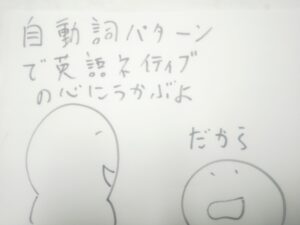 自動詞パターン
で英語ネイティブ
の心にうかぶよ
だから